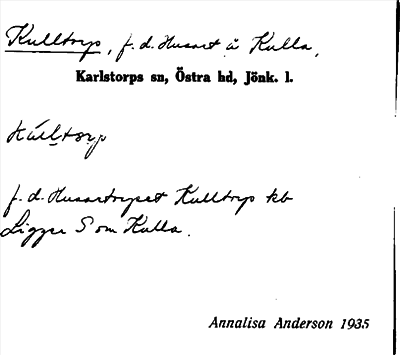 Kulltorp, f. d. Husart. å Kulla,
Karlstorps sn, Östra hd, Jönk. l.
kúltorp
f. d. Husartorpet Kulltorp kb
Ligger S om Kulla.
Annalisa Anderson 1935